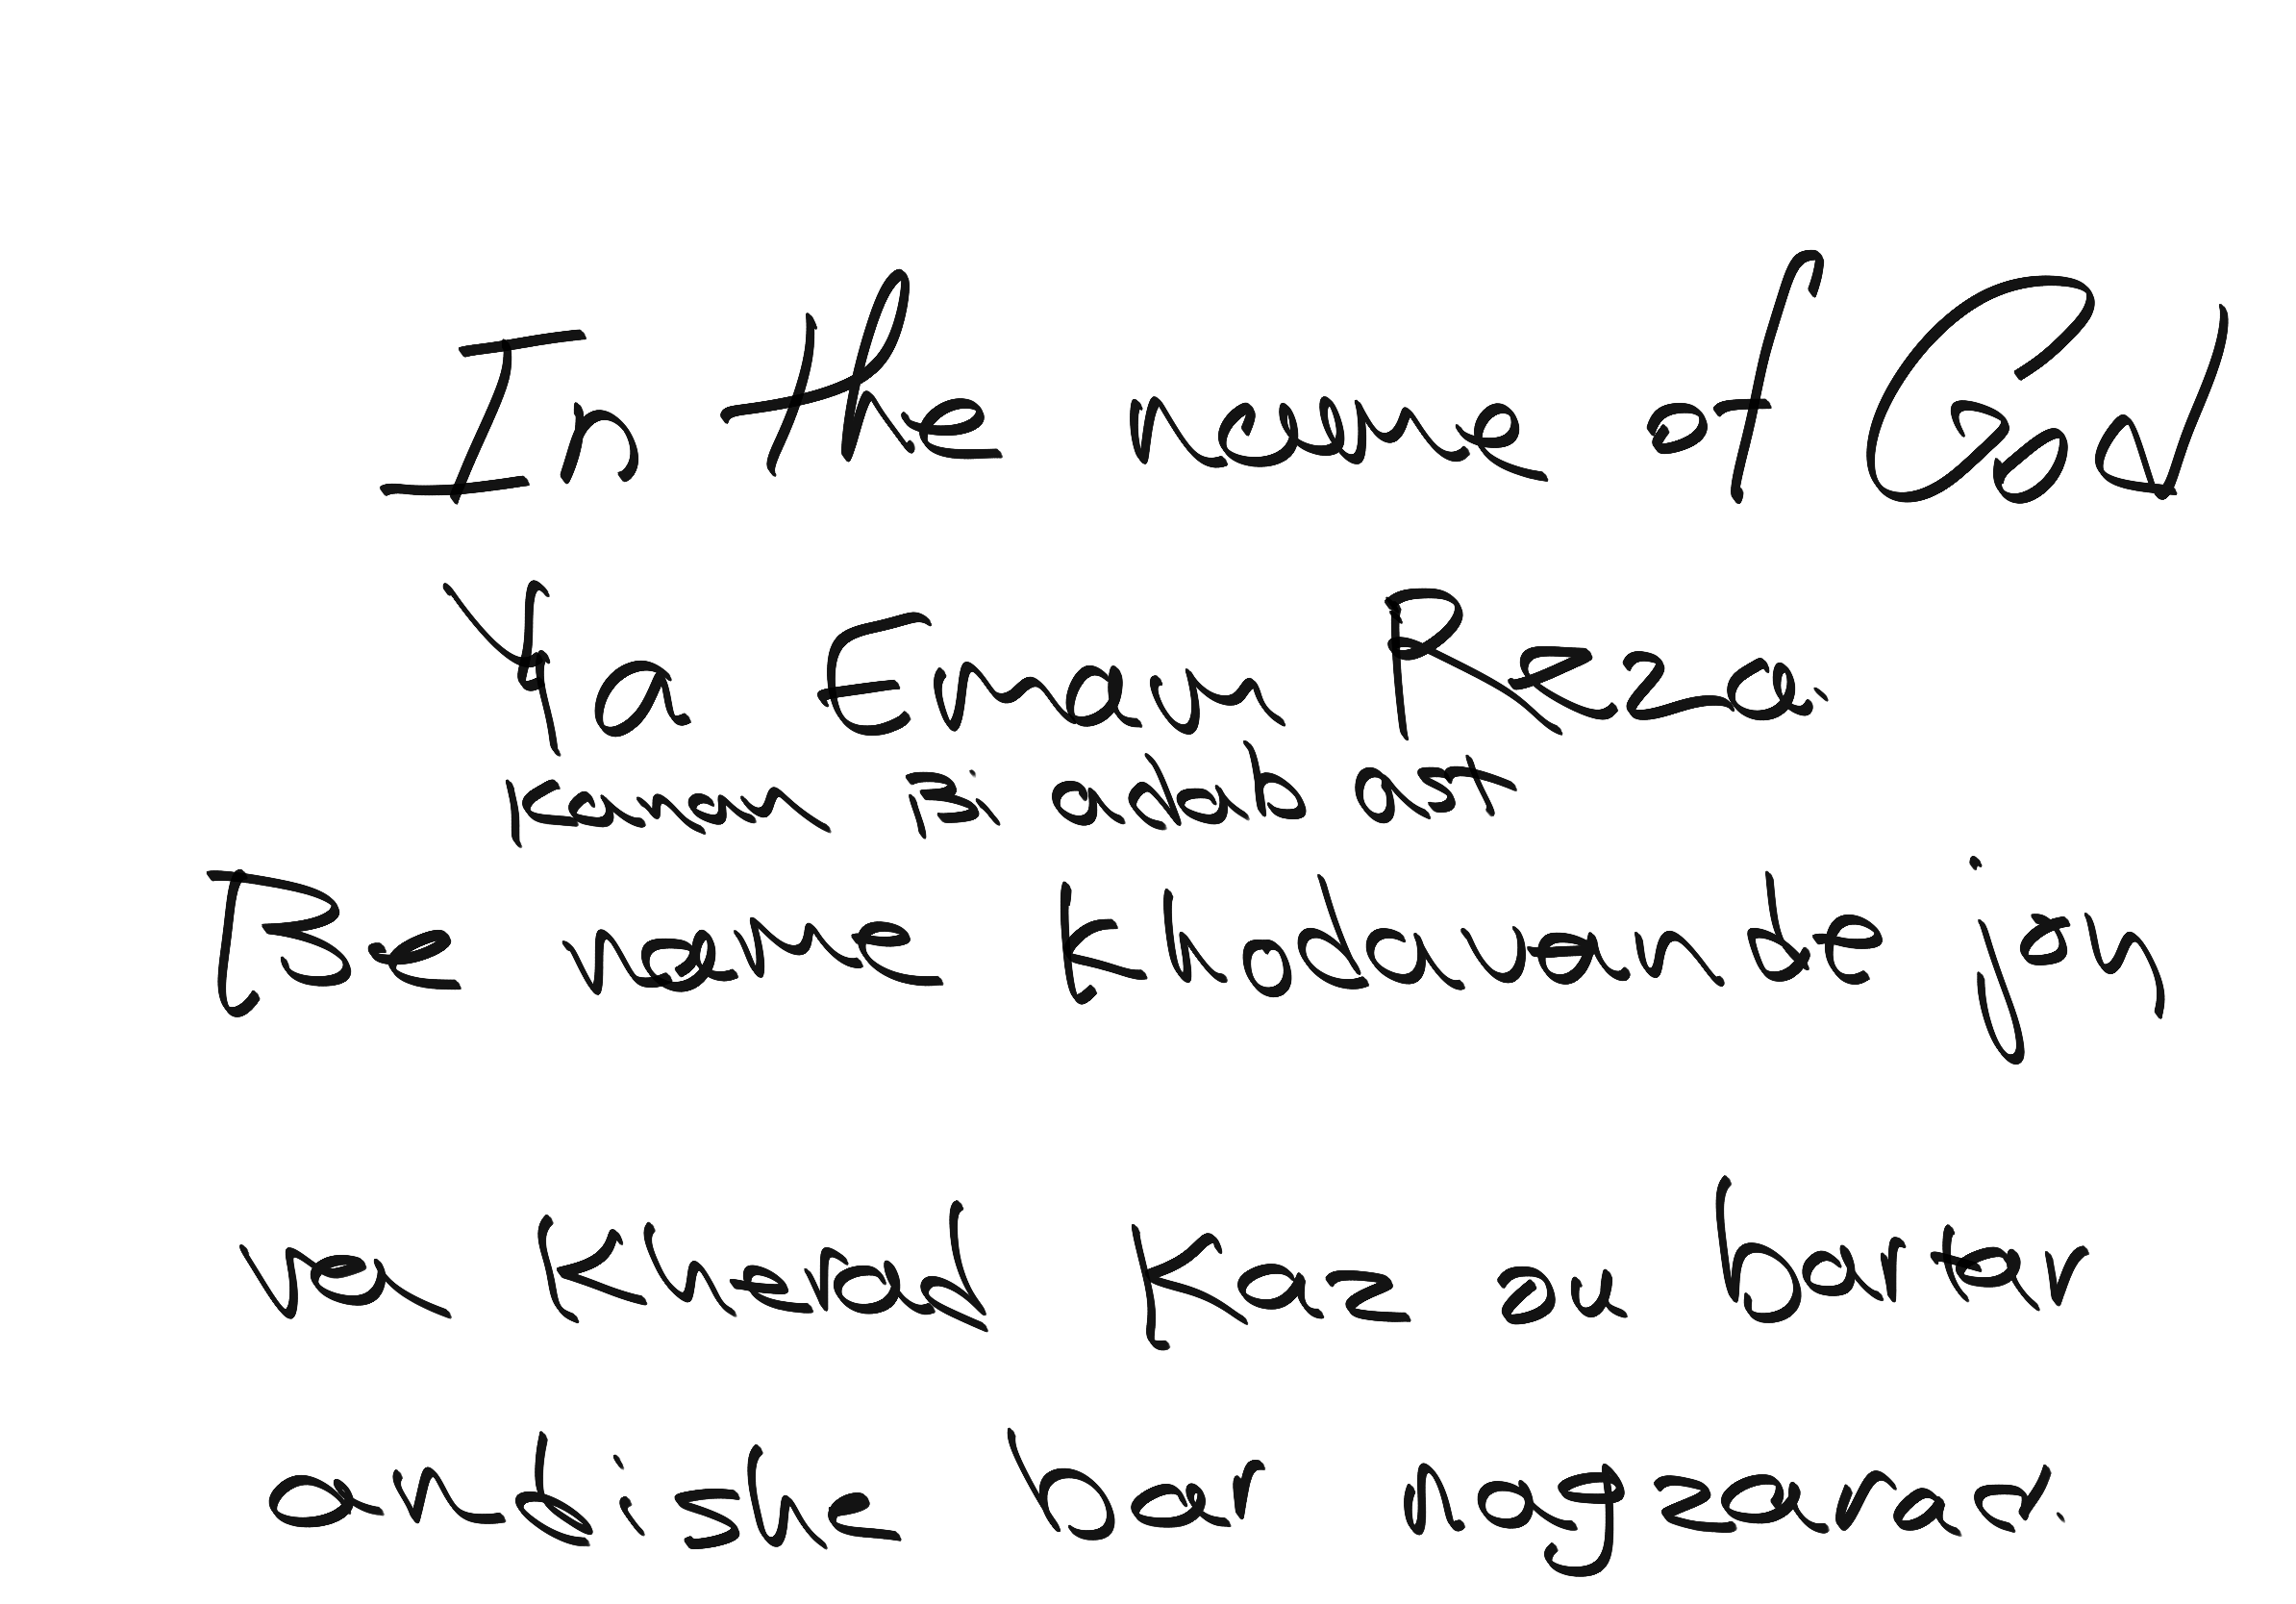 In the name of God
Ya Emam Reza.
Kanan Bi adab ast
Be name khodavande jan
va Kherad Kaz an bartar
andishe bar nagzarad.